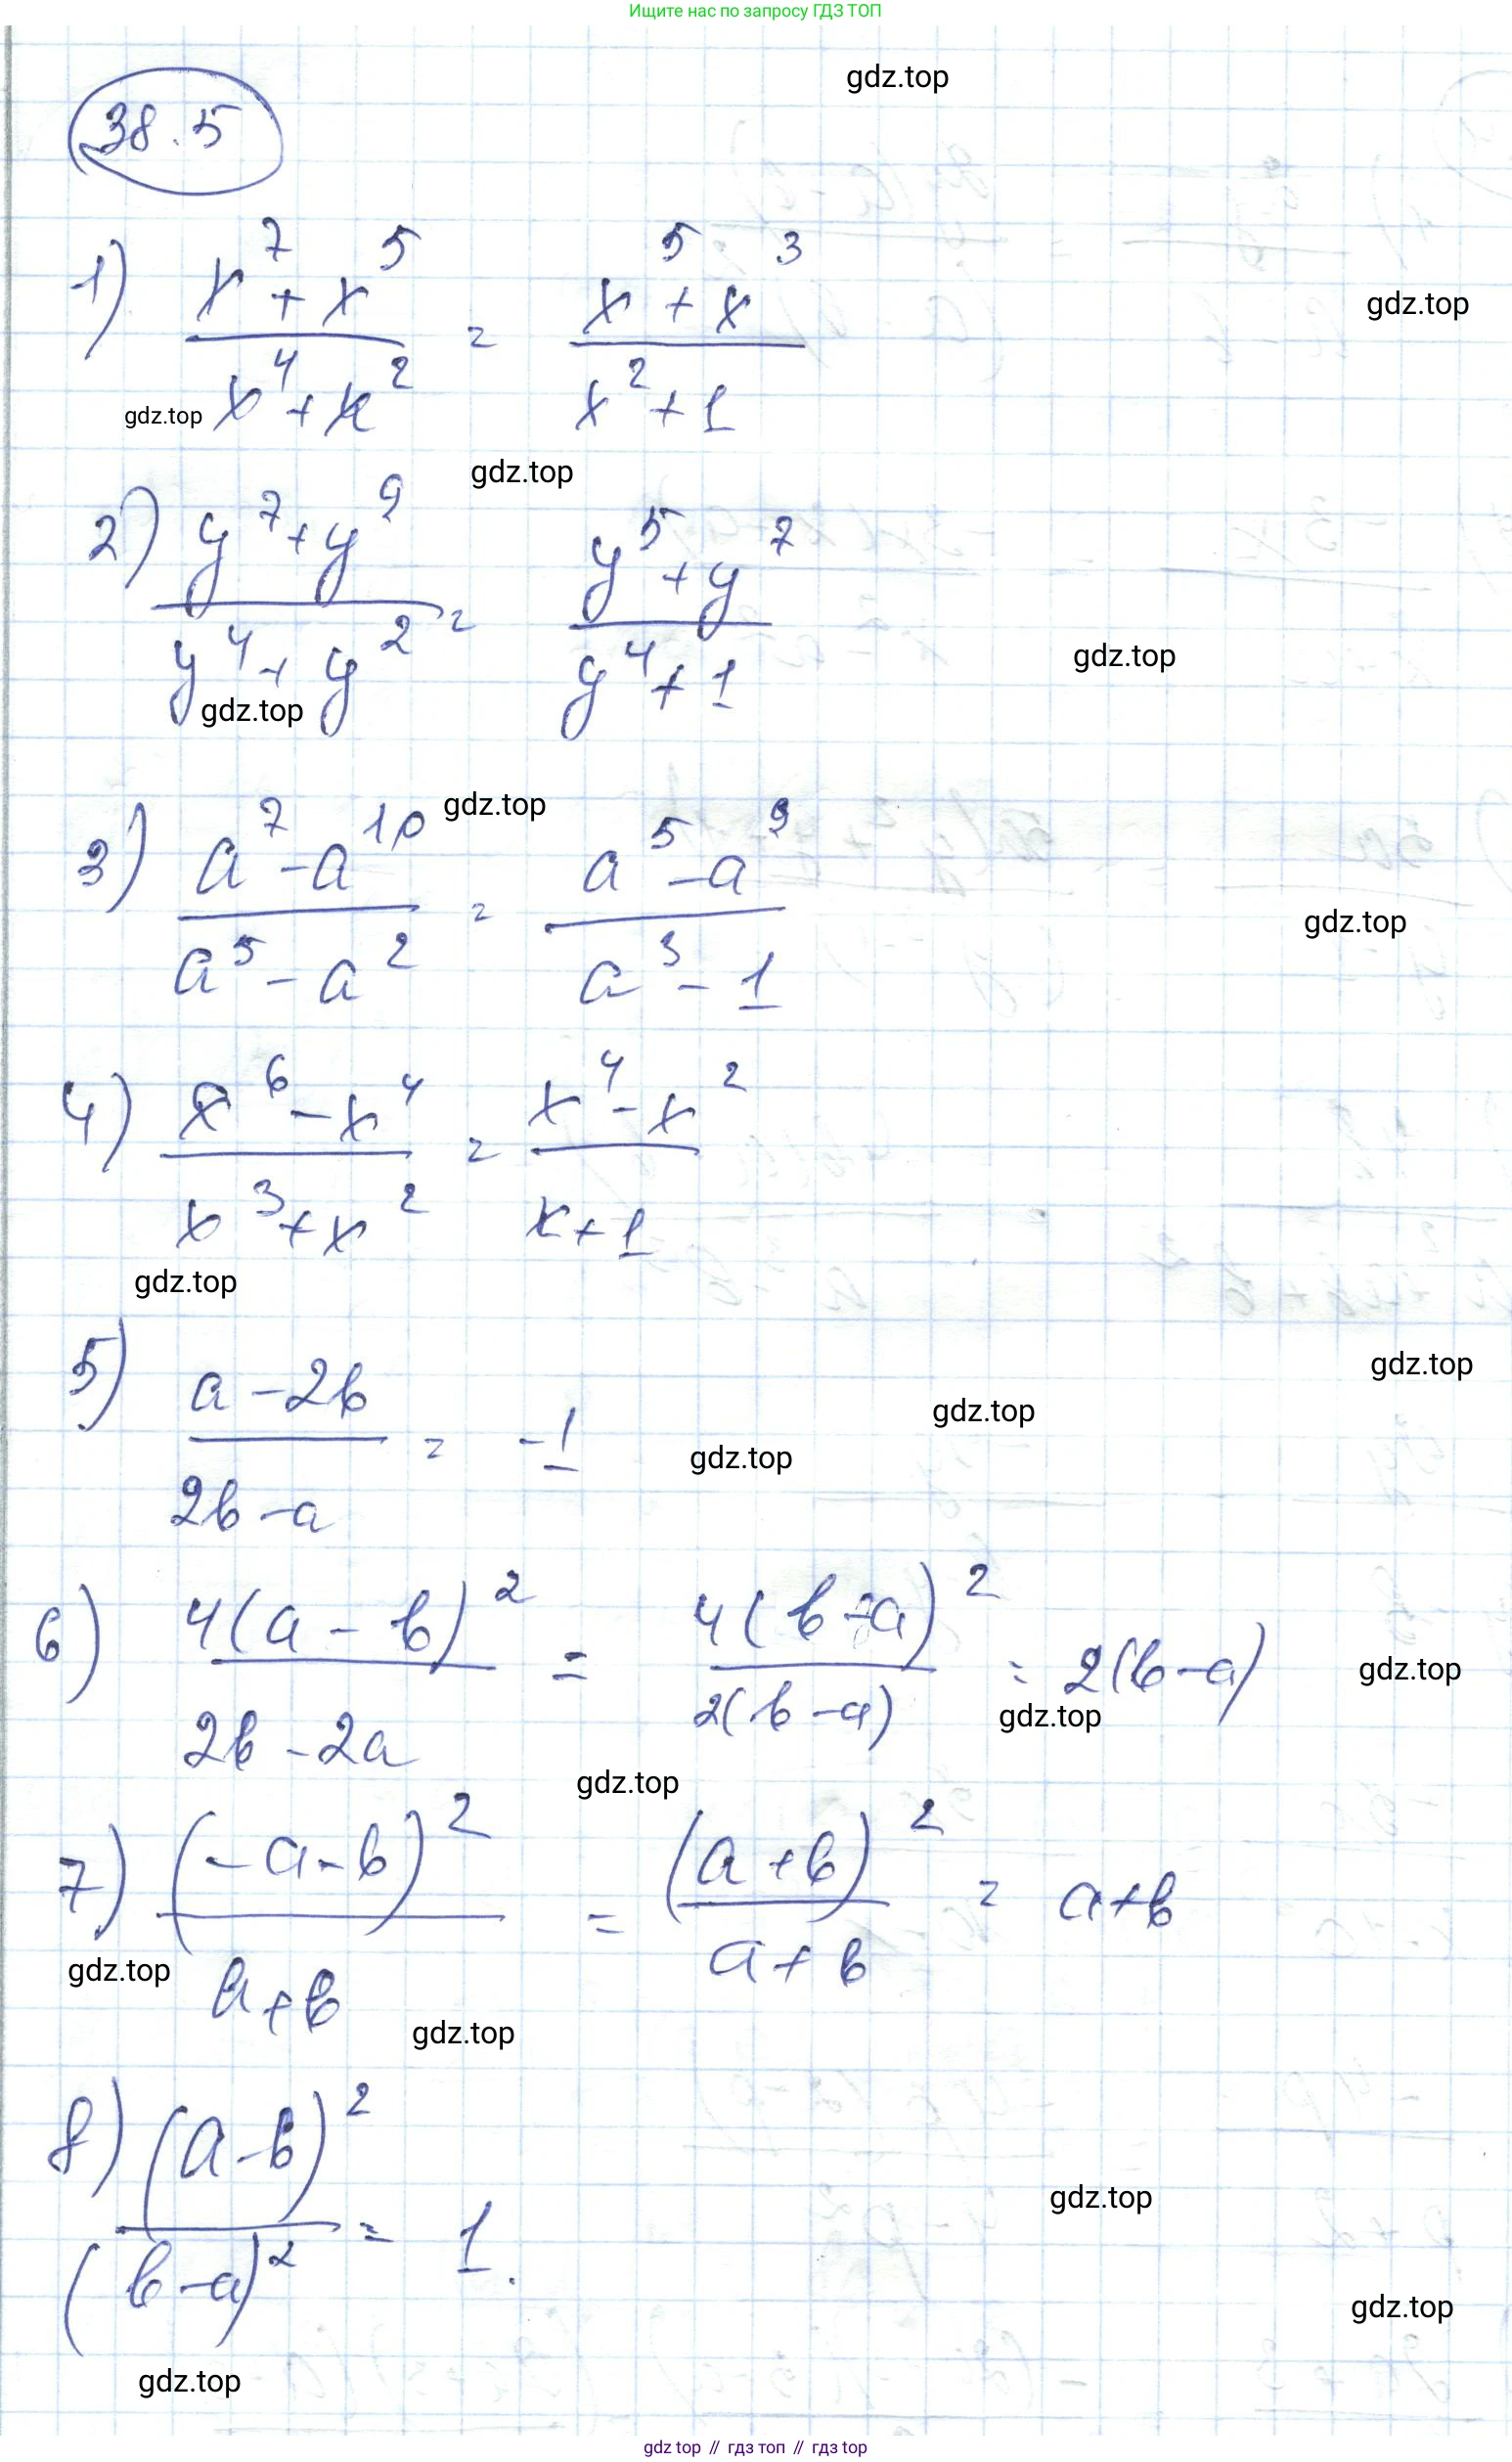 Ищите нас по запросу ГДЗ ТОП
gdz.top
38.5
1) (x^7 + x^5)/(x^4 + x^2) = (x^5 + x^3)/(x^2 + 1)
gdz.top
gdz.top
gdz.top
2) (y^7 + y^9)/(y^4 + y^2) = (y^5 + y^7)/(y^4 + 1)
gdz.top
gdz.top
gdz.top
3) (a^7 - a^10)/(a^5 - a^2) = (a^5 - a^9)/(a^3 - 1)
gdz.top
4) (x^6 - x^4)/(x^3 + x^2) = (x^4 - x^2)/(x + 1)
gdz.top
gdz.top
5) (a - 2b)/(2b - a) = -1
gdz.top
gdz.top
6) 4(a - b)^2/(2b - 2a) = 4(b - a)^2/(2(b - a)) = 2(b - a)
gdz.top
gdz.top
gdz.top
7) (-a - b)^2/(a + b) = (a + b)^2/(a + b) = a + b
gdz.top
gdz.top
8) (a - b)^2/(b - a)^2 = 1.
gdz.top
gdz.top
gdz.top
gdz top // гдз топ // гдз top